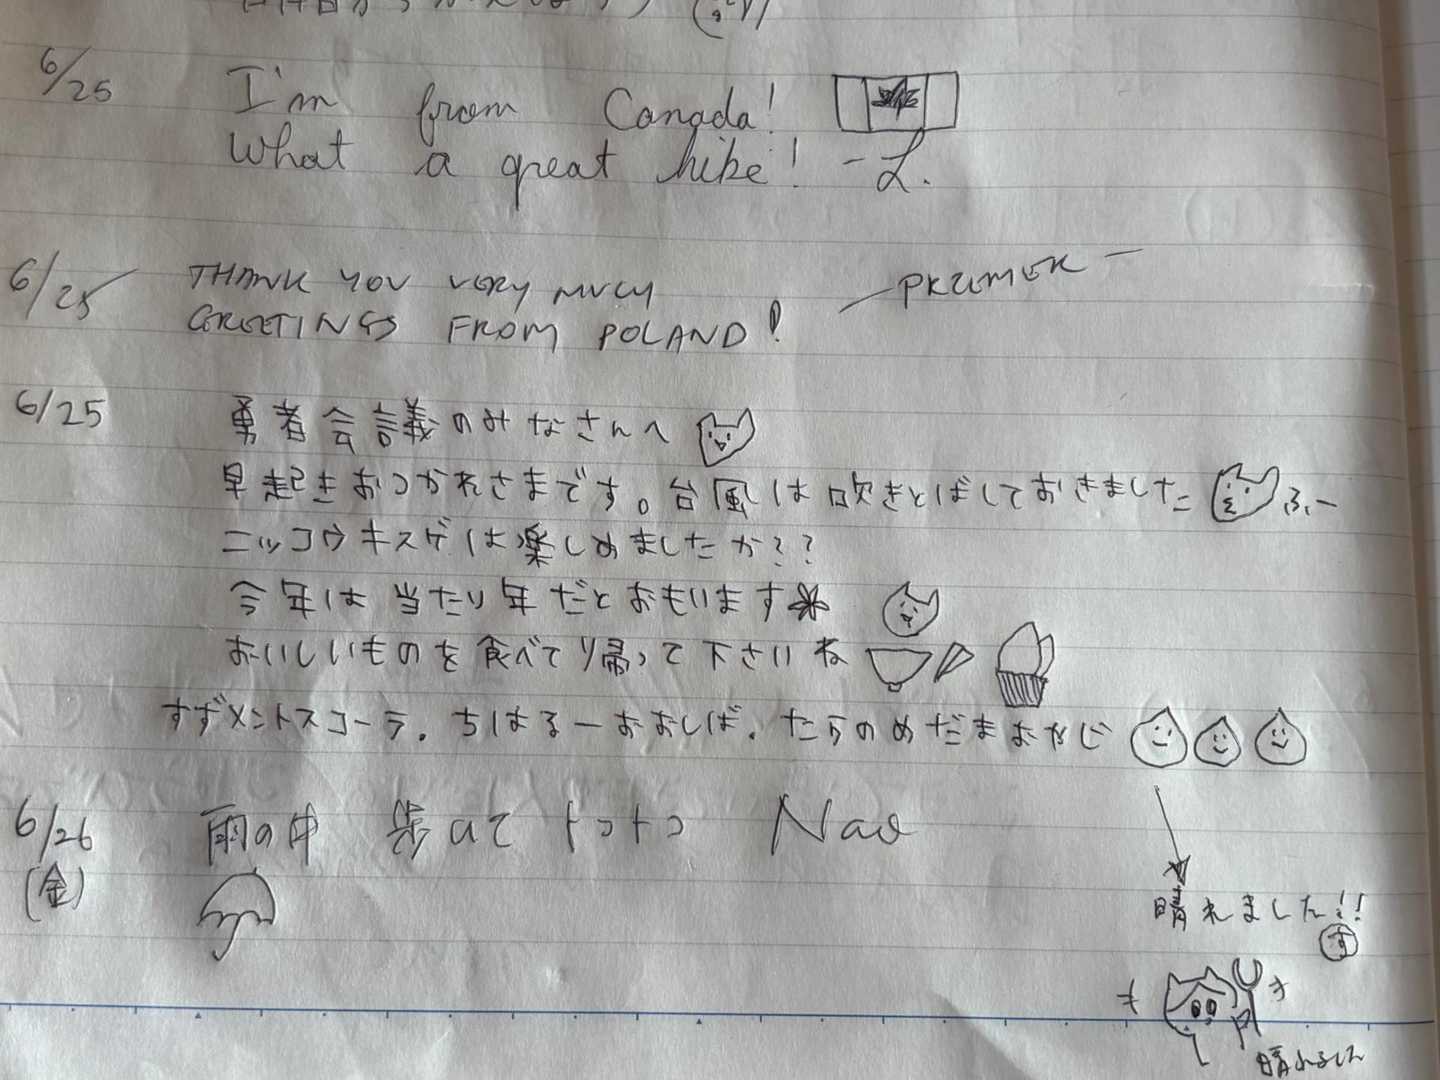 6/25 I'm from Canada!
What a great hike! -L.
6/25 THANK YOU VERY MUCH
GREETINGS FROM POLAND! - PRZEMEK -
6/25 勇者会議のみなさんへ
早起きおつかれさまです。台風は吹きとばしておきました ふぅー
ニッコウキスゲは楽しめましたか??
今年は当たり年だとおもいます
おいしいものを食べてり帰って下さいね
すずメントスコーラ. ちはるーおおしば. たらのめだまおやじ
6/26 雨の中 歩いて トコトコ Nao
(金)
晴れました!!
す
キ キ